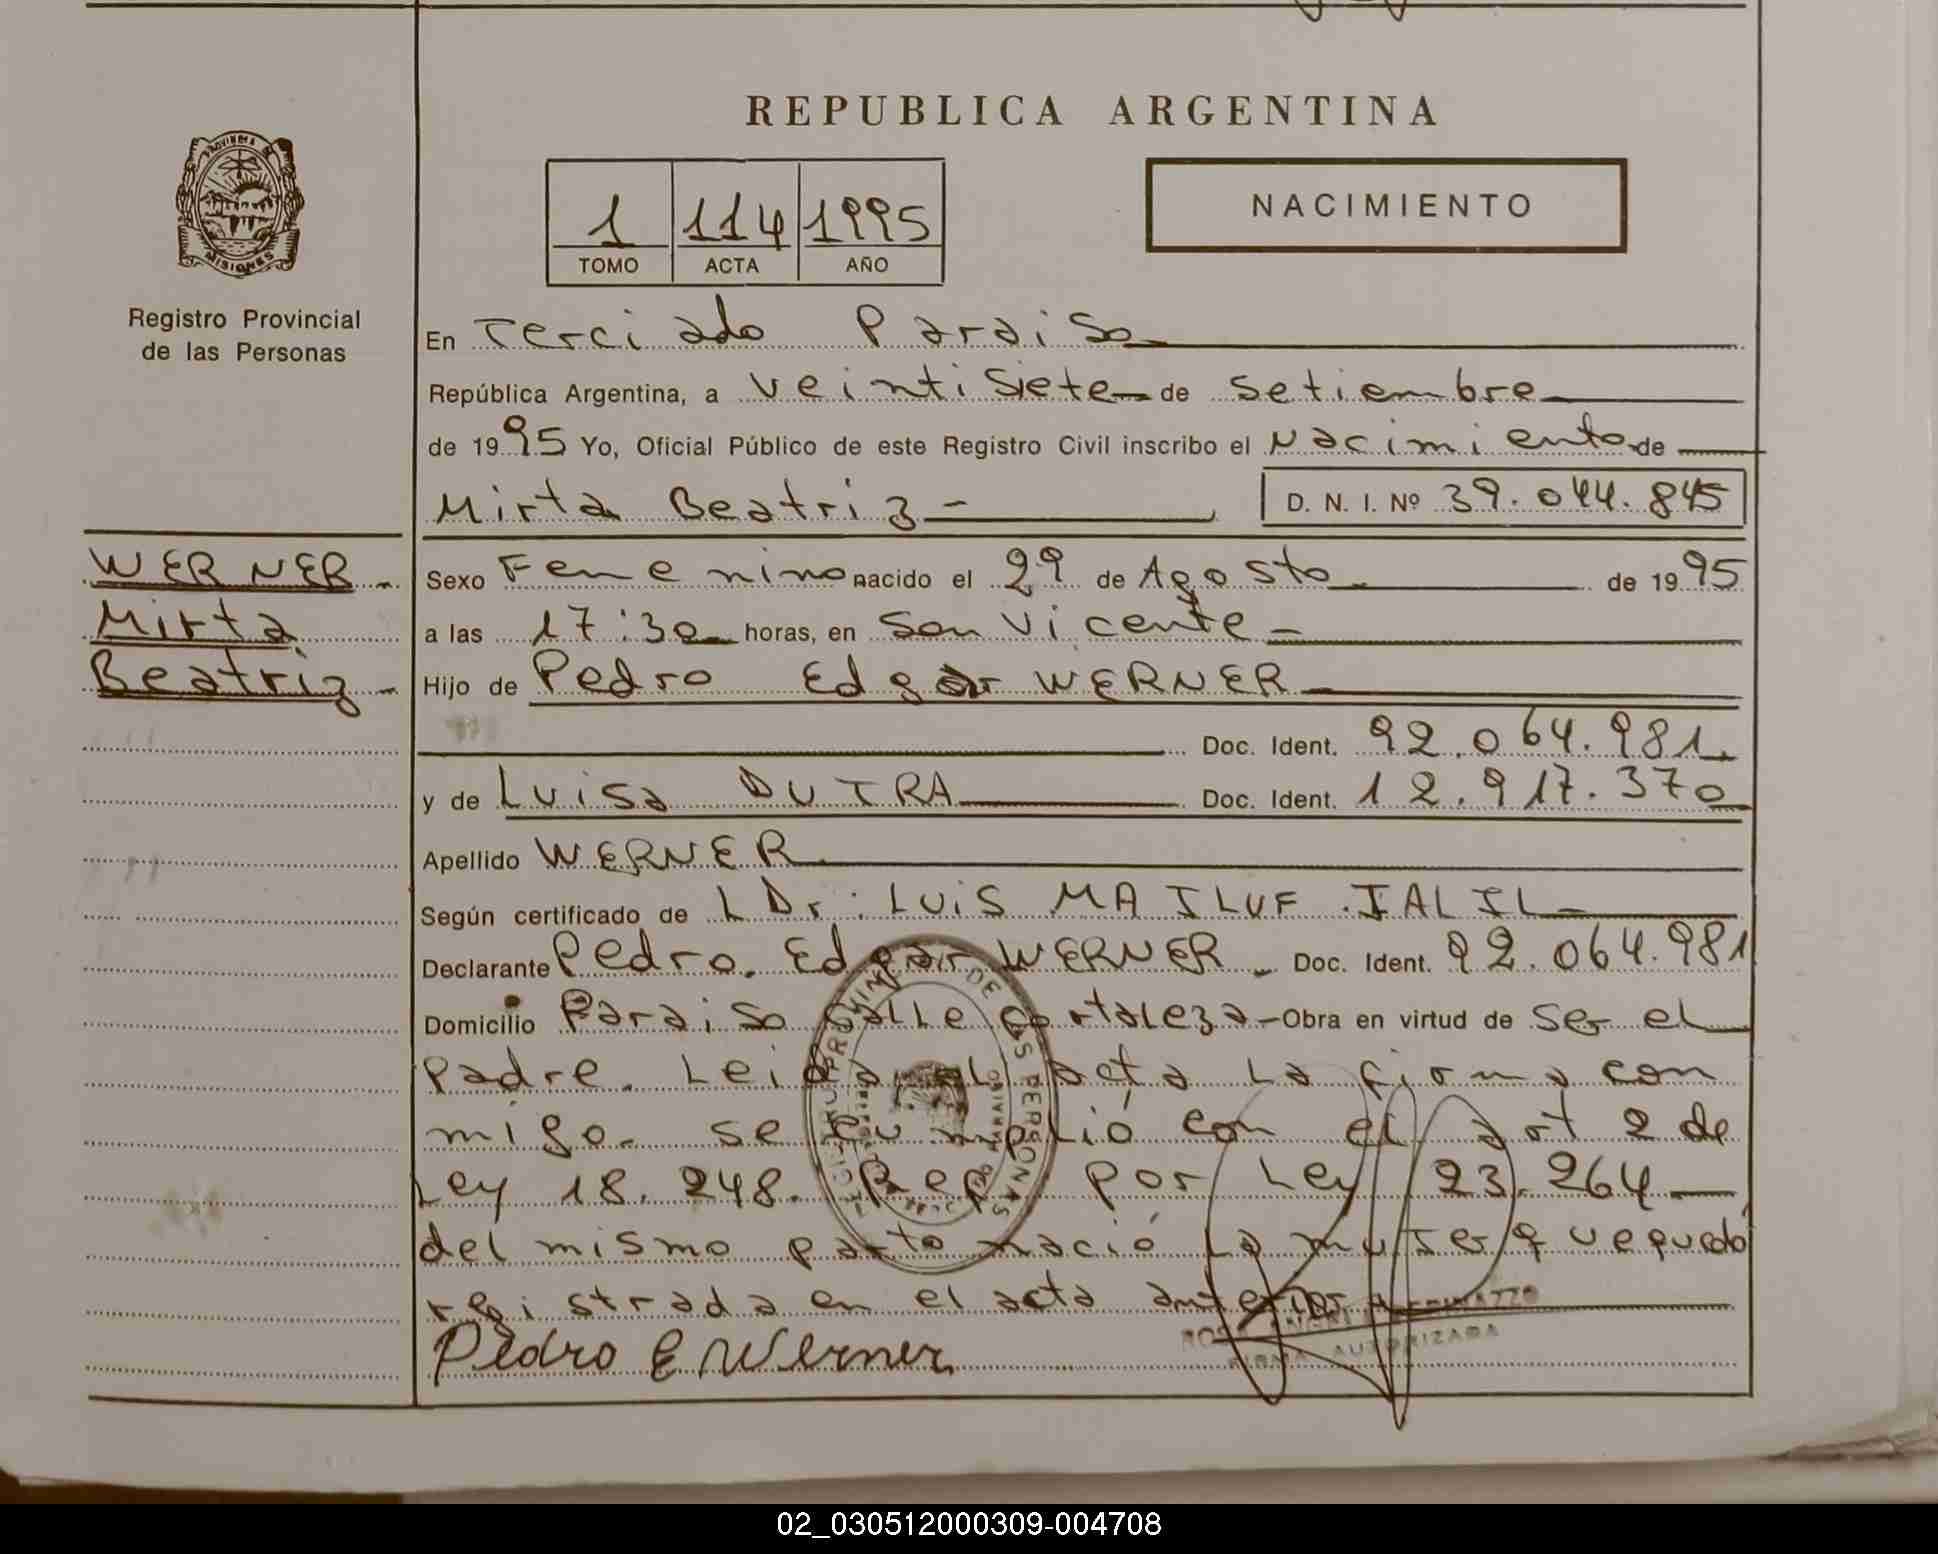 REPUBLICA ARGENTINA
PROVINCIA DE
MISIONES
Registro Provincial
de las Personas
1 114 1995
TOMO ACTA AÑO
NACIMIENTO
En Terciado Paraiso
República Argentina, a veintisiete de setiembre
de 1995 Yo, Oficial Público de este Registro Civil inscribo el Nacimiento de
Mirta Beatriz D. N. I. Nº 39.044.845
WERNER
Mirta
Beatriz
Sexo Femenino nacido el 29 de Agosto de 1995
a las 17:30 horas, en San Vicente
Hijo de Pedro Edgar WERNER
Doc. Ident. 92.064.981
y de Luisa DUTRA Doc. Ident. 12.917.370
Apellido WERNER
Según certificado de L Dr: LUIS MAILUF JALIL
Declarante Pedro Edgar WERNER Doc. Ident. 92.064.981
Domicilio Paraiso calle Fortaleza Obra en virtud de ser el
padre. Leida el acta la firma con
migo. se cumplió con el art 2 de
Ley 18.248. Rep por Ley 23.264
del mismo parto nació la mujer q ue quedó
registrada en el acta anterior
Pedro E Werner
FIRMA AUTORIZADA
DE LAS PERSONAS
02_030512000309-004708